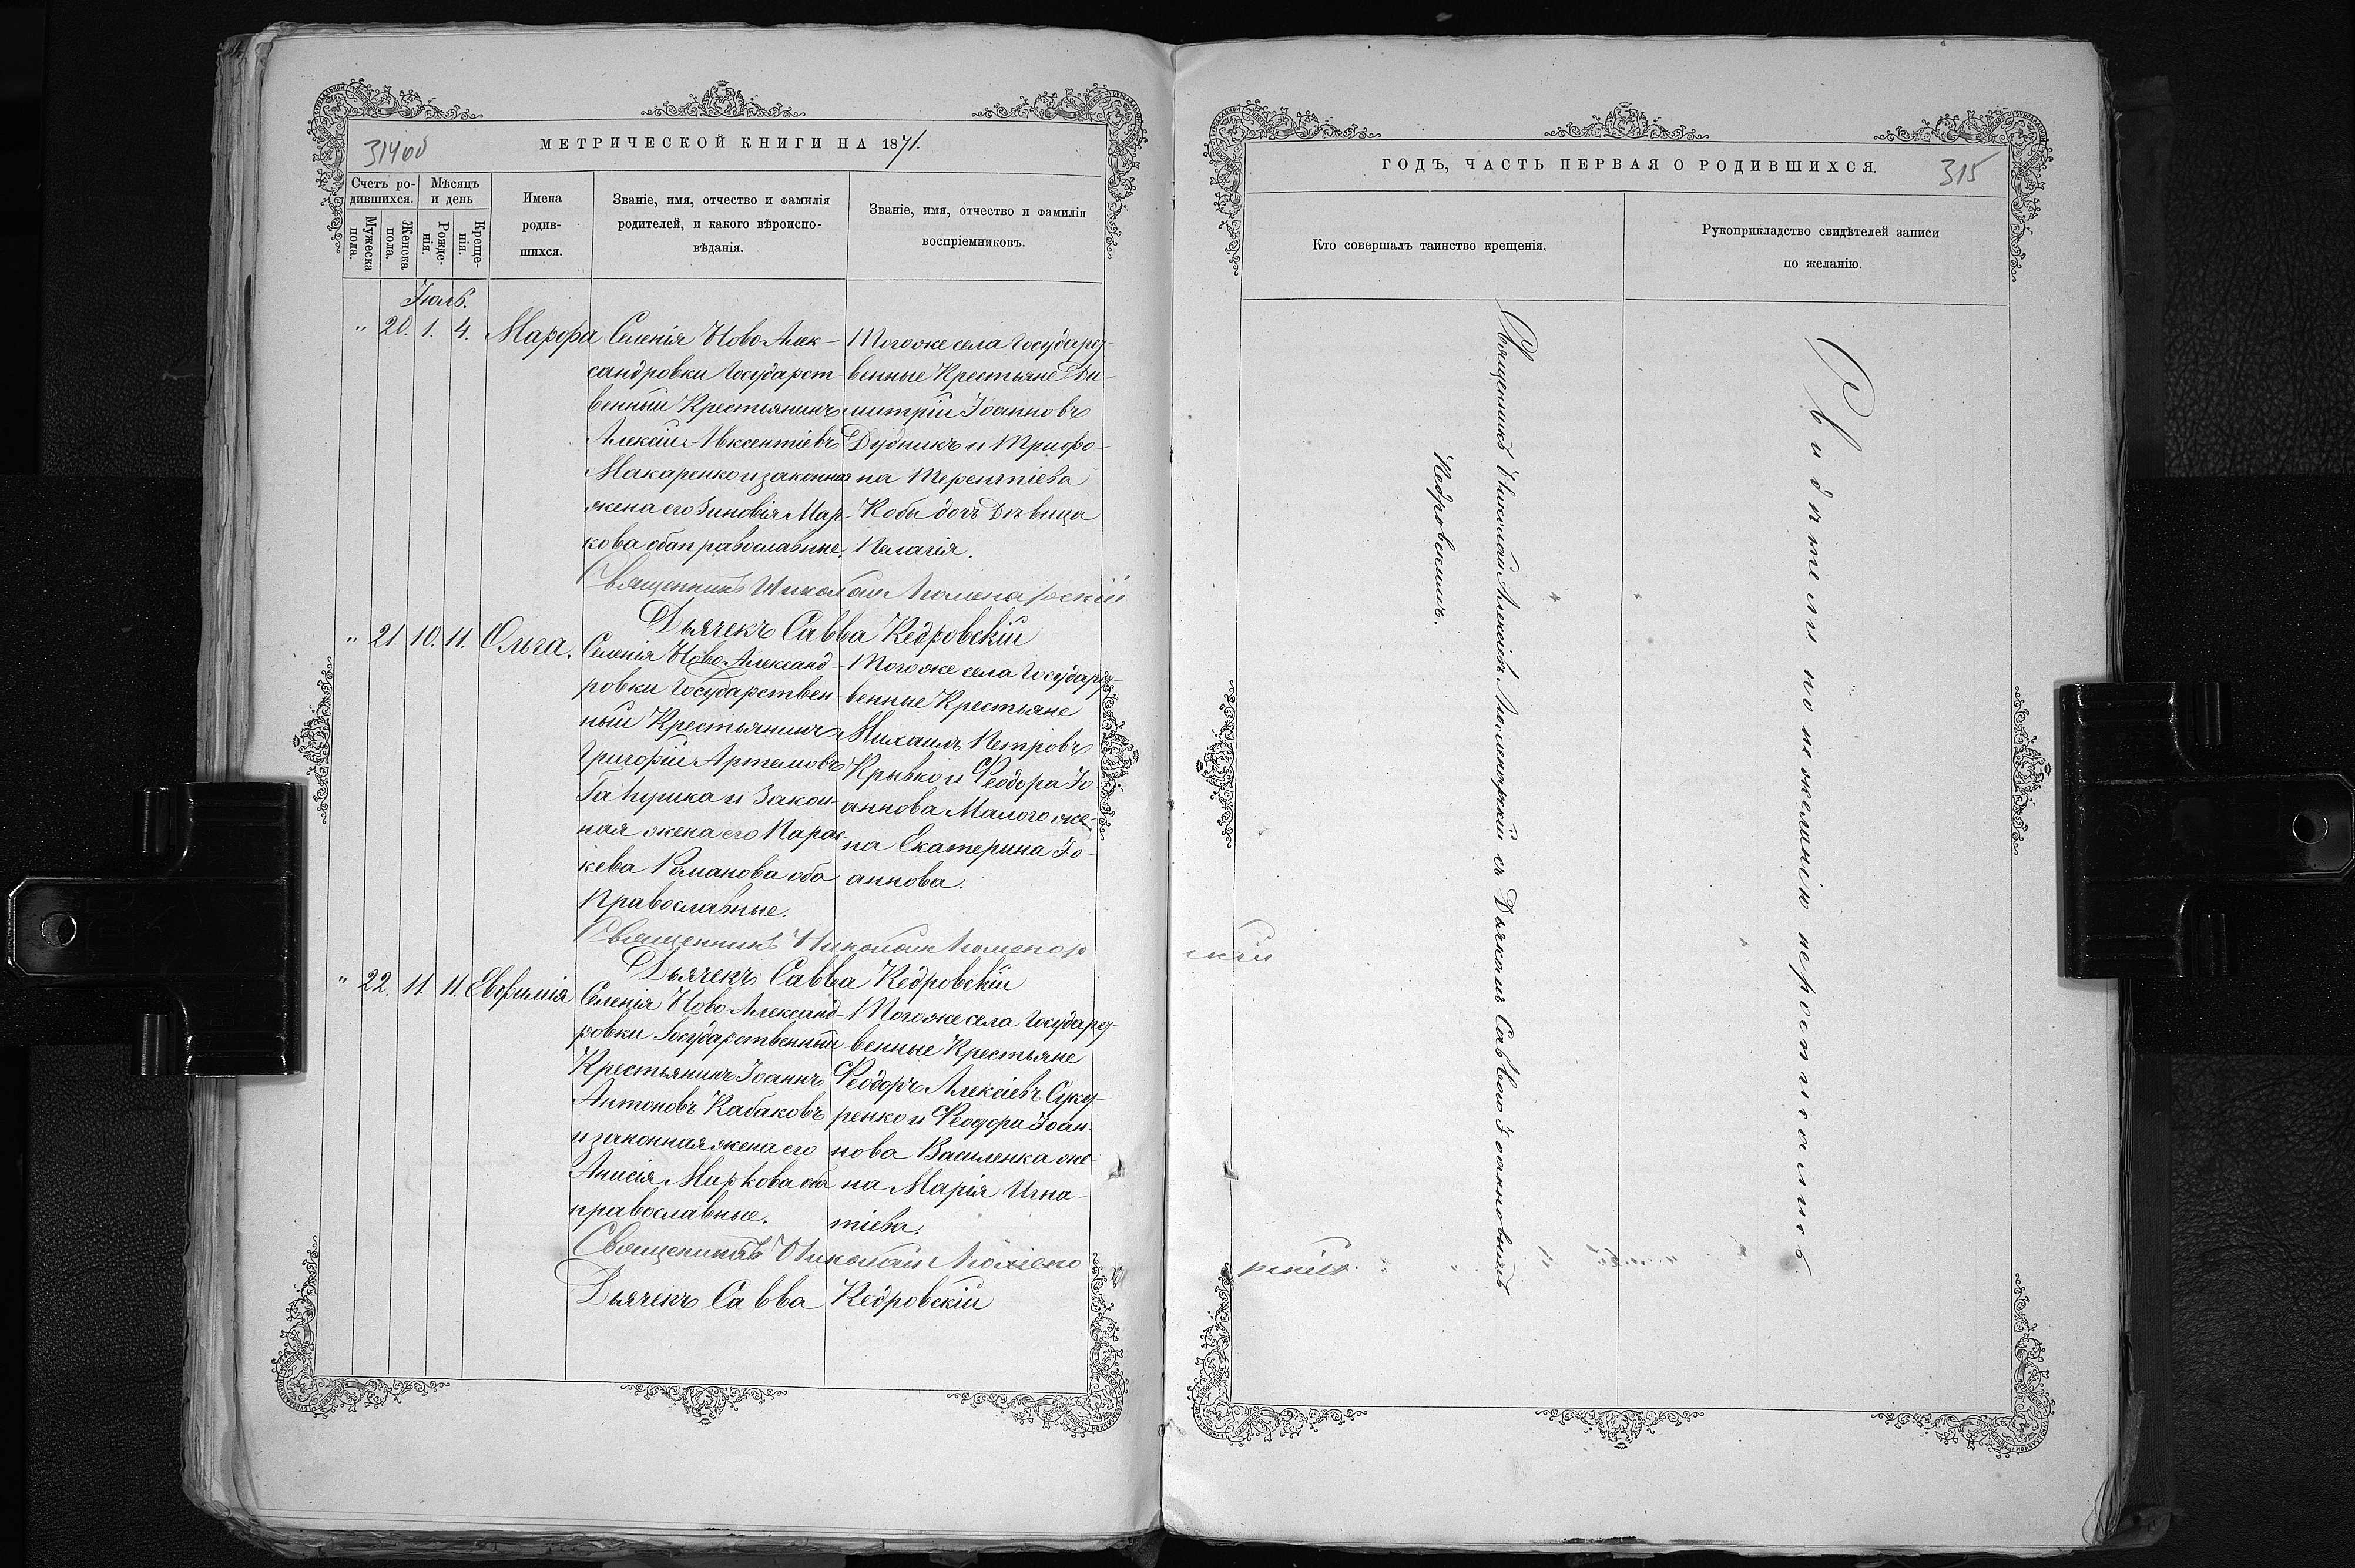 314об
МЕТРИЧЕСКОЙ КНИГИ НА 1871.
Счетъ ро-
дившихся.
Мѣсяцъ
и день
Мужеска
пола.
Женска
пола.
Рожде-
нія.
Креще-
нія.
Имена
родив-
шихся.
Званіе, имя, отчество и фамилія
родителей, и какого вѣроиспо-
вѣданія.
Званіе, имя, отчество и фамилія
воспріемниковъ.
Іюль.
" 20. 1. 4. Марфа
Селенія Ново Алек-
сандровки Государст-
венный Крестьянинъ
Алексій Авксентіевъ
Макаренко и законная
жена его Зиновія Мар-
кова оба православные.
Тогоже села Государ-
венные Крестьяне Ди-
митрій Іоанновъ
Дудникъ и Трифо-
на Терентіева
Кобы дочь Дѣвица
Пелагія.
Священникъ Николай
Дьячекъ Савва Кедровскій
" 21. 10. 11. Ольга.
Селенія Ново Александ-
ровки Государствен-
ный Крестьянинъ
Григорій Артемовъ
и Закон-
ная жена его Парас-
кева Романова оба
Православные.
Тогоже села Государ-
венные Крестьяне
Михаилъ Петровъ
Крывко и Феодора Іо-
аннова Малого же-
на Екатерина Іо-
аннова.
Священникъ Николай
Дьячекъ Савва Кедровскій
" 22. 11. 11. Евфимія
Селенія Ново Александ-
ровки Государственный
Крестьянинъ Іоаннъ
Антоновъ Кабаковъ
и законная жена его
Анисія Маркова оба
православные.
Тогоже села Государ-
венные Крестьяне
Феодоръ Алексіевъ Суку-
ренко и Феодора Іоан-
нова Василенка же-
на Марія Игна-
тіева.
Священникъ Николай
Дьячекъ Савва Кедровскій
ГОДЪ, ЧАСТЬ ПЕРВАЯ О РОДИВШИХСЯ.
315
Кто совершалъ таинство крещенія.
Рукоприкладство свидѣтелей записи
по желанію.
Священникъ Николай Алексіевъ съ Дьякомъ Саввою Іоанновымъ
Кедровскимъ.
Свидѣтели по нежеланію нероспысались